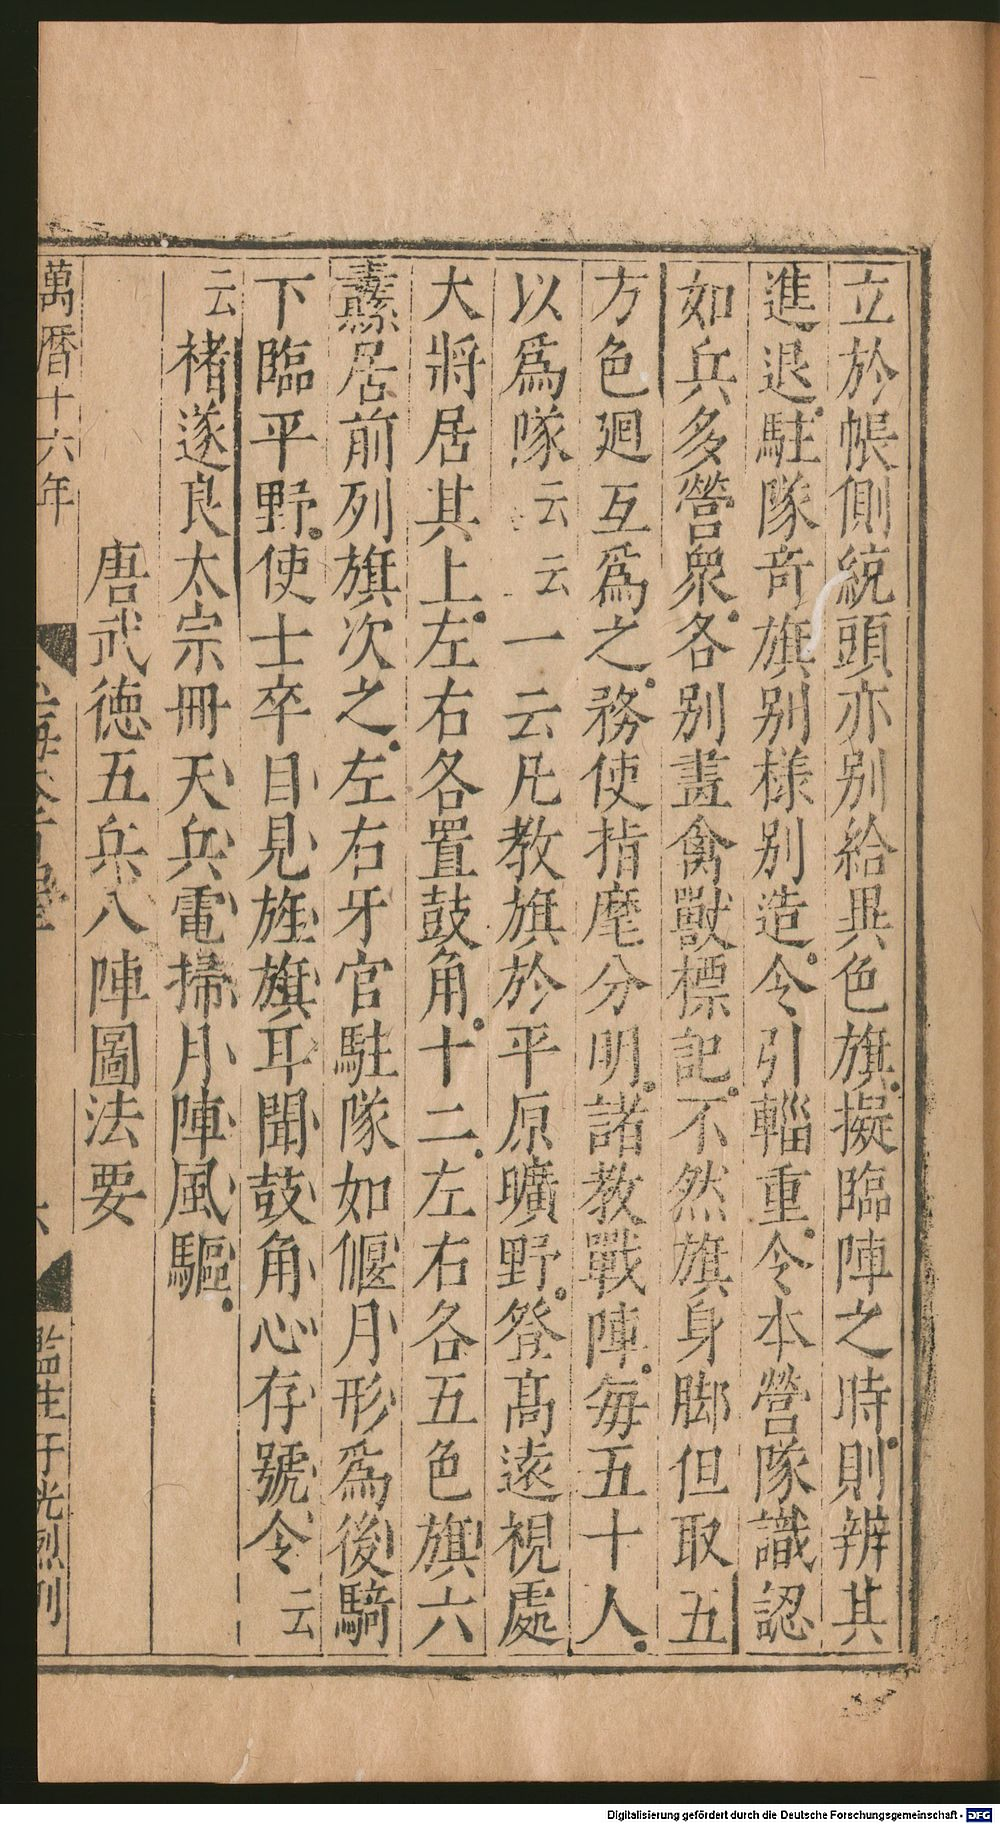 立於帳側統頭亦别給異色旗擬臨陣之時則辨其
進退駐隊竒旗别樣别造令引輜重令本營隊識認
如兵多營衆各别畫禽獸標記不然旗身脚但取五
方色廻互爲之務使指麾分明諸教戰陣每五十人
以爲隊云云一云凡教旗於平原曠野登高遠視處
大將居其上左右各置鼓角十二左右各五色旗六
纛居前列旗次之左右牙官駐隊如偃月形爲後騎
下臨平野使士卒目見旌旗耳聞鼓角心存號令云
云褚遂良太宗冊天兵電掃月陣風驅
唐武德五兵八陣圖法要
萬曆十六年
監生于光烈刊
Digitalisierung gefördert durch die Deutsche Forschungsgemeinschaft - DFG